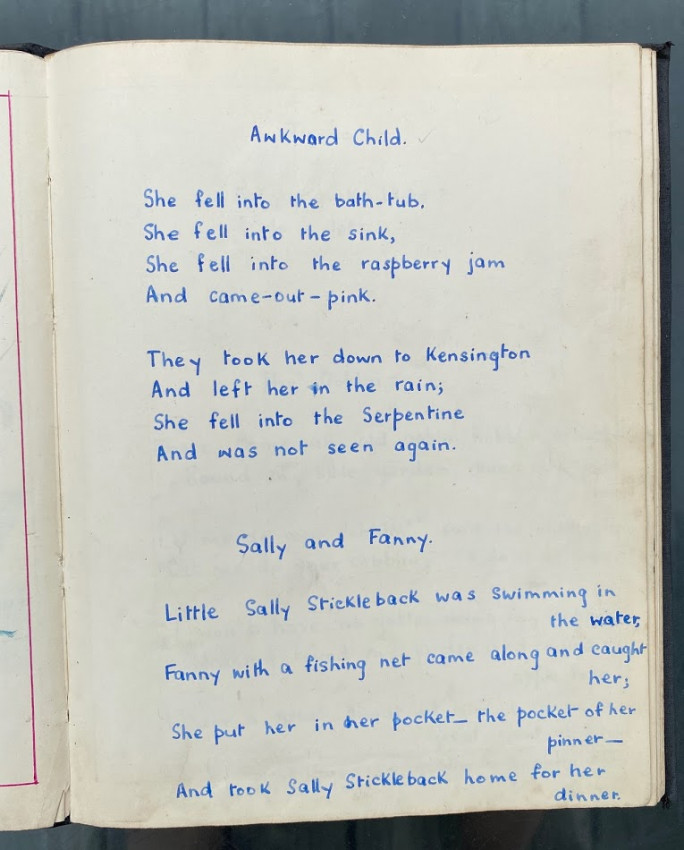 Awkward Child.
She fell into the bath-tub.
She fell into the sink,
She fell into the raspberry jam
And came-out-pink.
They took her down to Kensington
And left her in the rain;
She fell into the Serpentine
And was not seen again.
Sally and Fanny.
Little Sally Stickleback was swimming in
the water,
Fanny with a fishing net came along and caught
her;
She put her in her pocket— the pocket of her
pinner—
And took Sally Stickleback home for her
dinner.